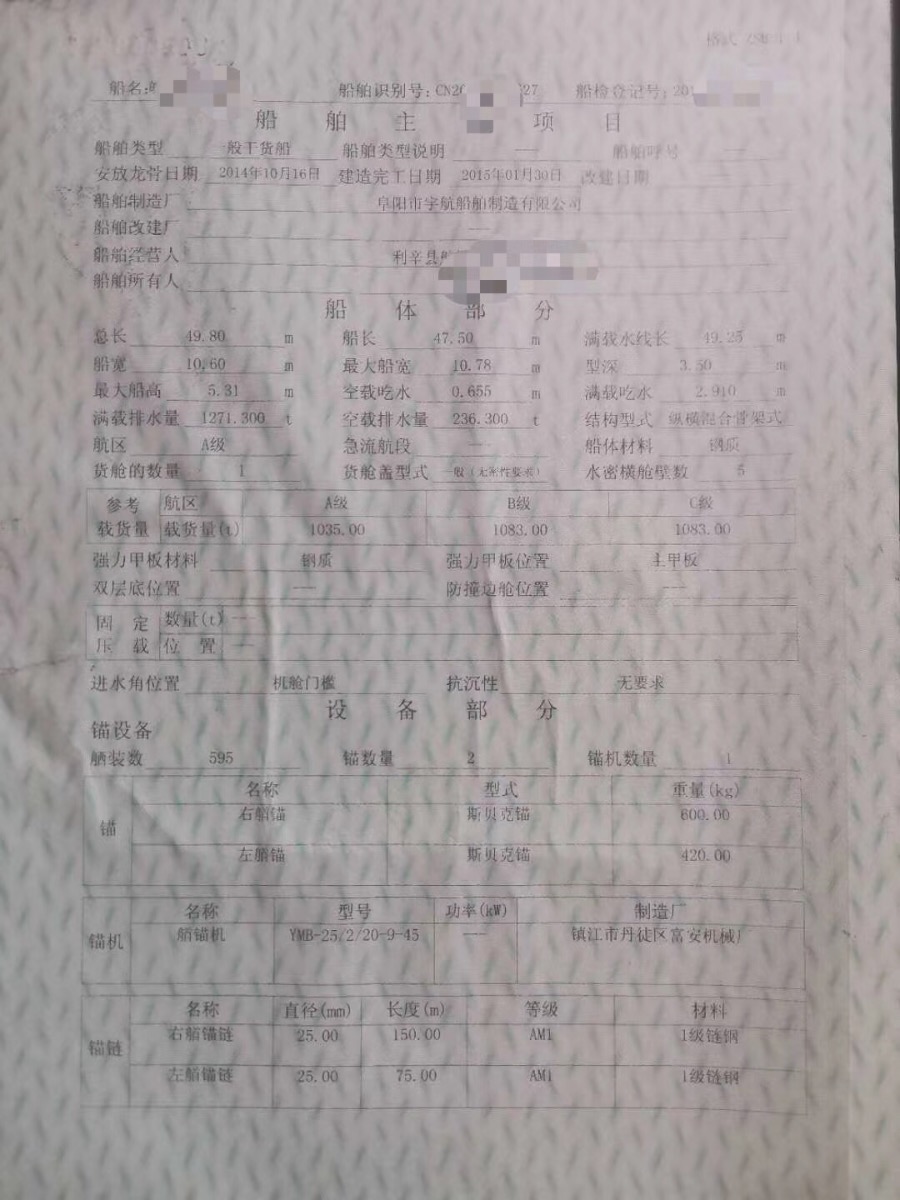 格式
船名: 船舶识别号:CN20 27 船检登记号:201
船舶主 项目
船舶类型 一般干货船 船舶类型说明 —— 船舶呼号 ——
安放龙骨日期 2014年10月16日 建造完工日期 2015年01月30日 改建日期
船舶制造厂 阜阳市宇航船舶制造有限公司
船舶改建厂 ——
船舶经营人 利辛县
船舶所有人
船体部分
总长 49.80 m 船长 47.50 m 满载水线长 49.25 m
船宽 10.60 m 最大船宽 10.78 m 型深 3.50 m
最大船高 5.31 m 空载吃水 0.655 m 满载吃水 2.910 m
满载排水量 1271.300 t 空载排水量 236.300 t 结构型式 纵横混合骨架式
航区 A级 急流航段 —— 船体材料 钢质
货舱的数量 1 货舱盖型式 一般(无密性要求) 水密横舱壁数 5
参考 航区 A级 B级 C级
载货量 载货量(t) 1035.00 1083.00 1083.00
强力甲板材料 钢质 强力甲板位置 主甲板
双层底位置 —— 防撞边舱位置 ——
固定 数量(t) ——
压载 位置 ——
进水角位置 机舱门槛 抗沉性 无要求
设备部分
锚设备
舾装数 595 锚数量 2 锚机数量 1
名称 型式 重量(kg)
锚 右艏锚 斯贝克锚 600.00
左艏锚 斯贝克锚 420.00
名称 型号 功率(kW) 制造厂
锚机 艏锚机 YMB-25/2/20-9-45 —— 镇江市丹徒区富安机械厂
名称 直径(mm) 长度(m) 等级 材料
锚链 右艏锚链 25.00 150.00 AM1 1级链钢
左艏锚链 25.00 75.00 AM1 1级链钢